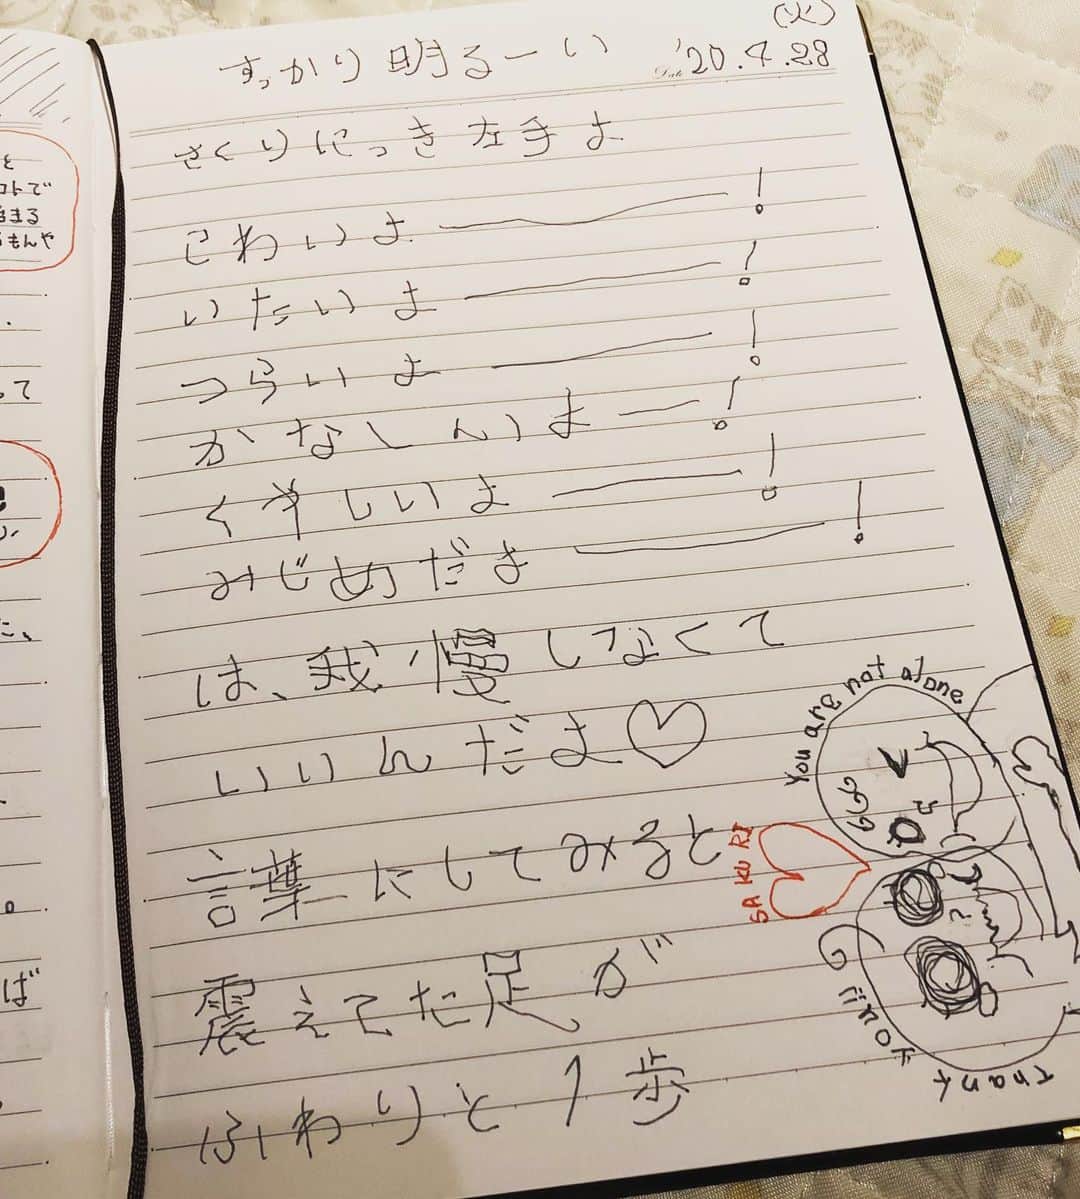 (火)
すっかり明るーい
Date '20.4.28
さくりにっき左手よ
こわいよ――!
いたいよ――!
つらいよ――!
かなしんいよー!
くやしいよ――!
みじめだよ――!
は、我慢しなくて
いいんだよ♡
言葉にしてみると
震えてた足が
ふわりと1歩
You are not alone
SAKURI
Thank you!!
と
コトで
まる
もんや
って
た、
ば